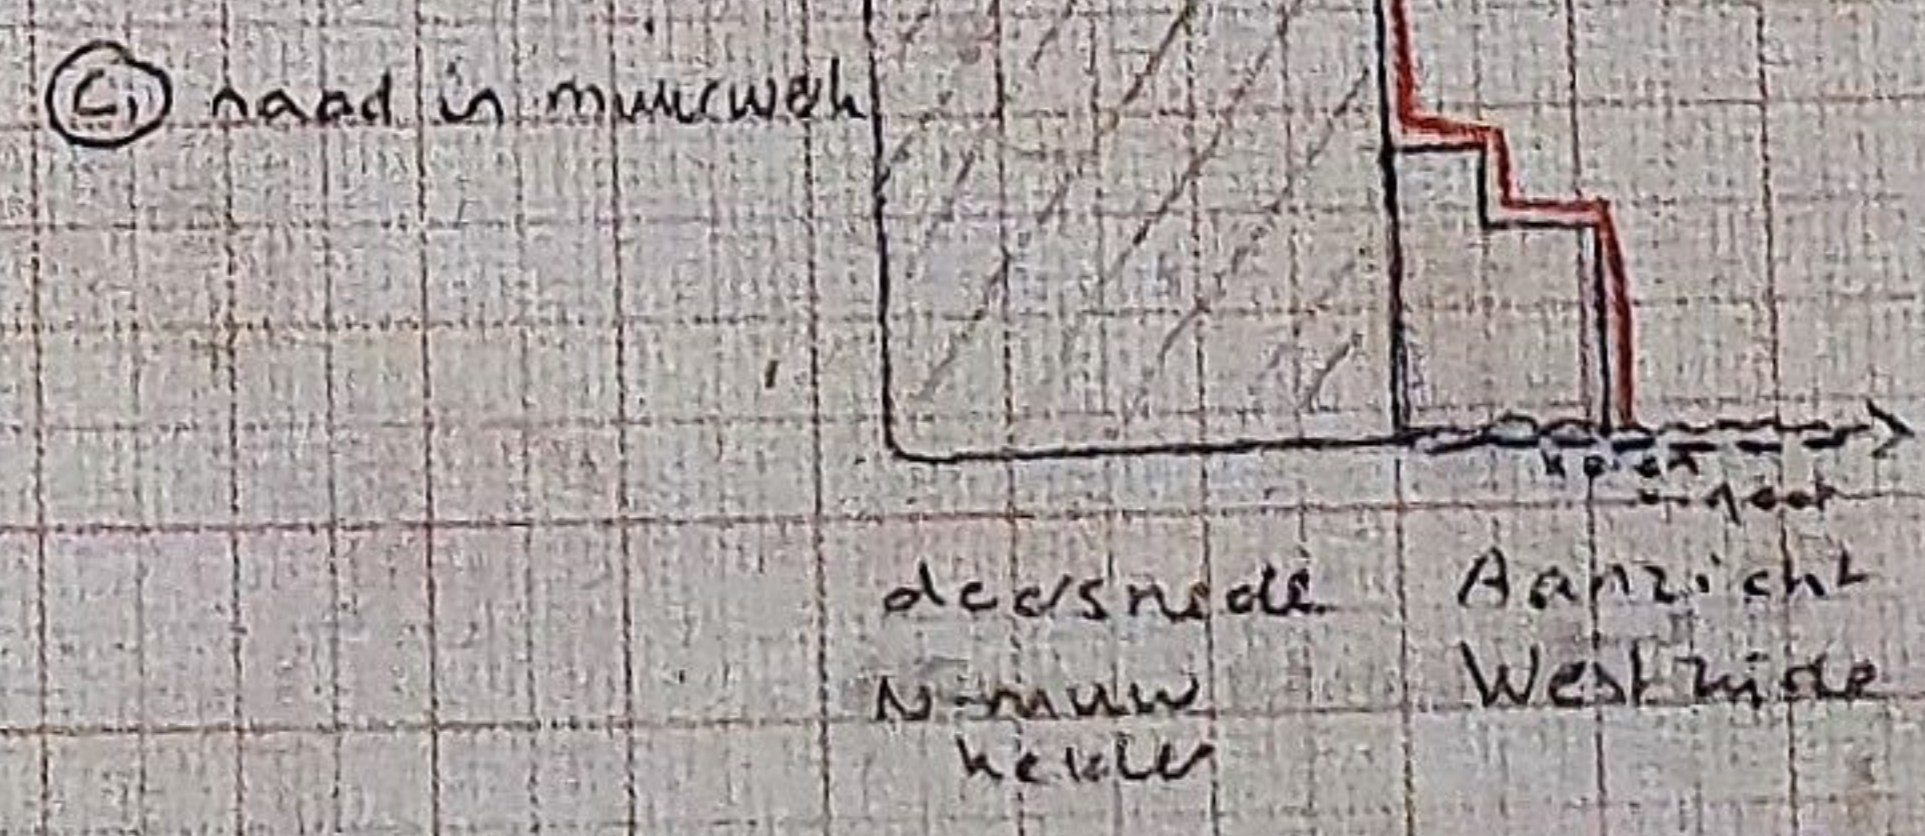 C, naad in muurwerk
doorsnede
N-muur
kelder
Aanzicht
Westzijde